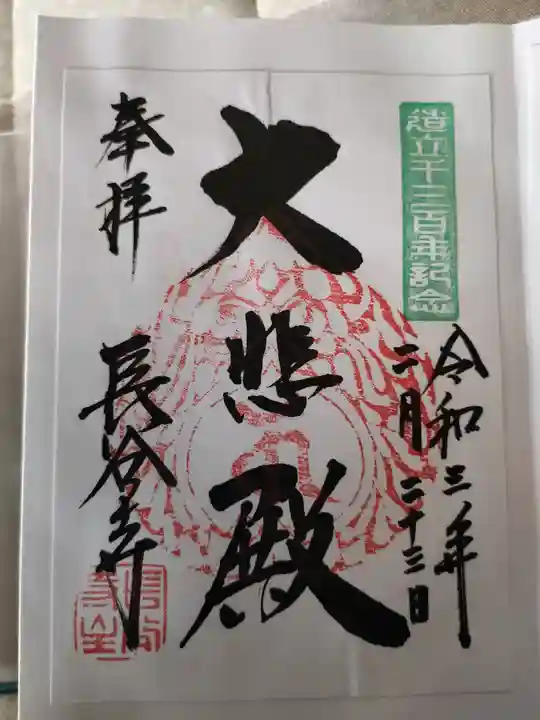 造立千三百年記念
令和三年
二月二十三日
大悲殿
奉拝
長谷寺